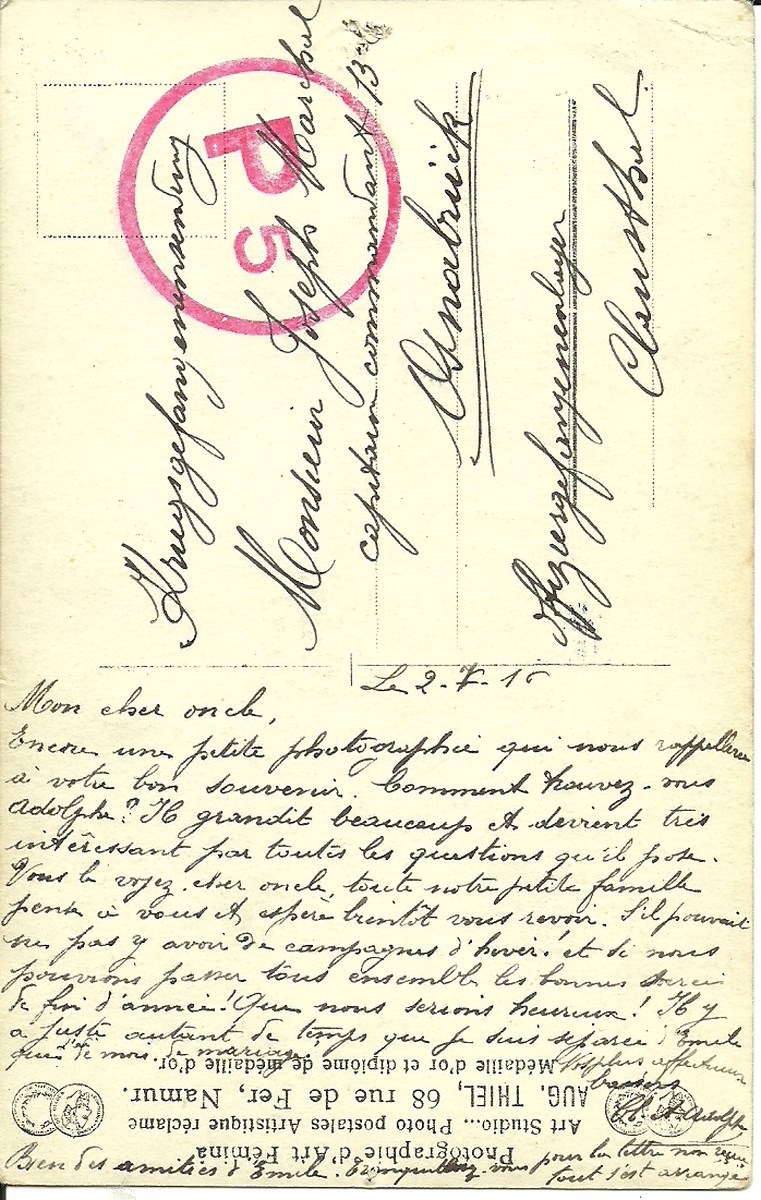 Kriegsgefangenensendung
Monsieur Joseph Marchal
capitaine commandant 13e
Osnabrück
Offiziergefangenenlager
Clausthal.
P 5
Le 2-7-16
Mon cher oncle,
Encore une petite photographie qui nous rappellera
à votre bon souvenir. Comment trouvez-vous
Adolphe? Il grandit beaucoup et devient très
intéressant par toutes les questions qu'il pose.
Vous le voyez, cher oncle, toute notre petite famille
pense à vous et espère bientôt vous revoir. S'il pouvait
ne pas y avoir de campagnes d'hiver! et si nous
pouvions passer tous ensemble les bonnes soirées
de fin d'année! Que nous serions heureux! Il y
a juste autant de temps que je suis séparée d'Emile
que de mois de mariage.
Vos plus affectueux
baisers
et Adolphe
Bien des amitiés d'Emile. Tranquillisez-vous pour la lettre non reçue
tout s'est arrangé
Photographie d'Art Fémina
Art Studio... Photo postales Artistique réclame
AUG. THIEL, 68 rue de Fer, Namur.
Médaille d'or et diplôme de médaille d'or.